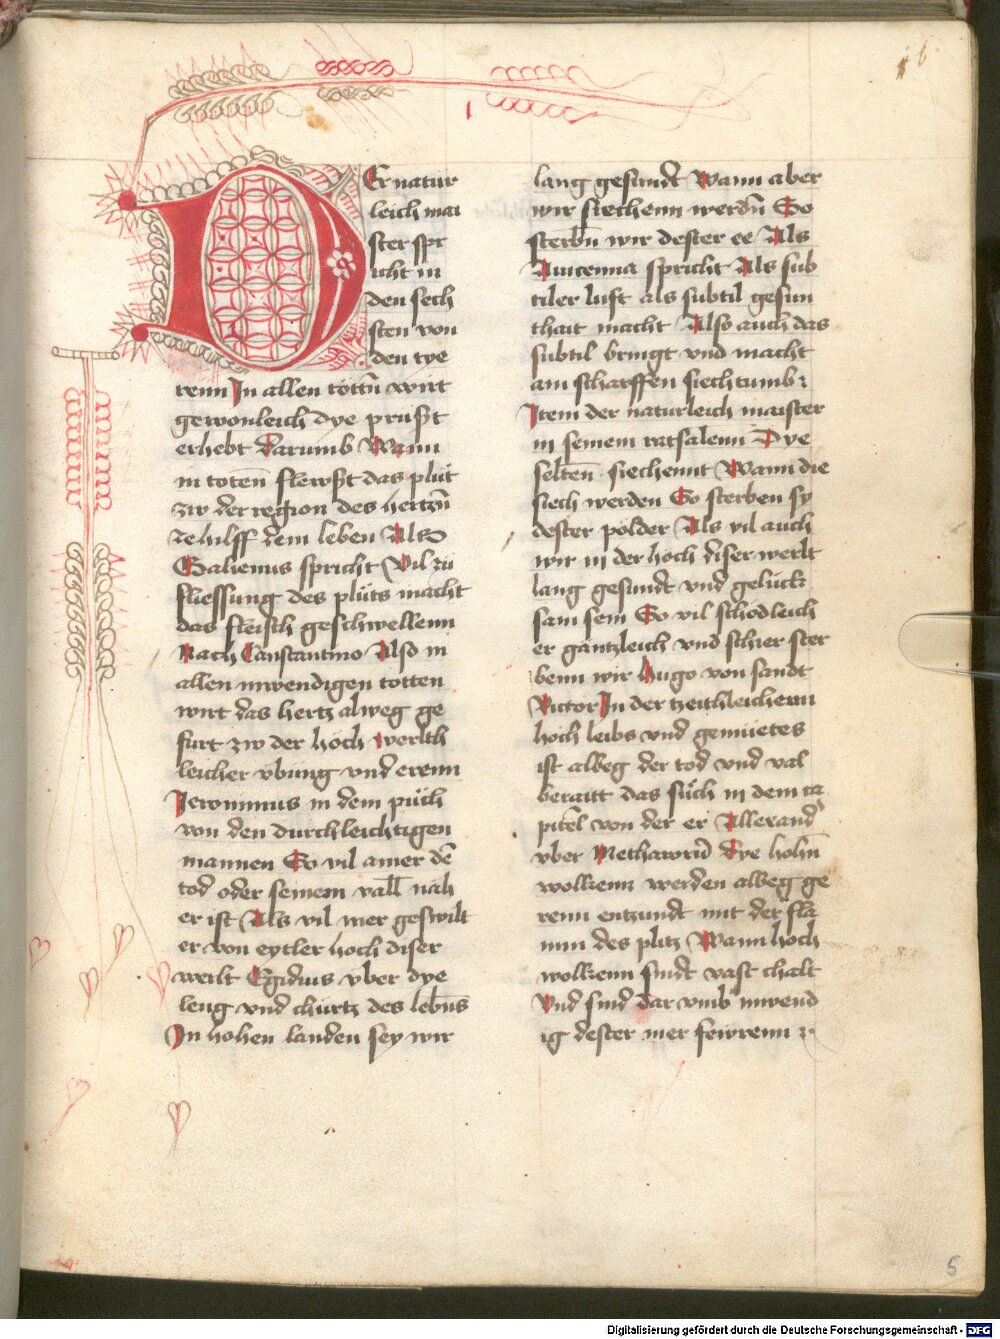 16
DEr natur
leich mai
ster spr
icht in
den sech
sten von
den tye
renn In allen tottn̄ wirt
gewonleich dye prust
erhebt Darumb Wann
in totenn flewst das plüt
zw der region des hertzn̄
ze hilff dem leben Als
Galienus spricht Vil zü
fliessung des plüts macht
das fleisch geschwellenn
Nach Constantino Also in
allen inwendigen totten
wirt das hertz alweg ge
furt zw der hoch werlth
leicher vbung vnd erenn
Jeronimus in dem püch
von den durchleichtigen
mannen So vil aines de
tod oder seinem vall nah
er ist Als vil mer geswilt
er von eytler hoch diser
werlt Egidius vber dye
leng vnd chürtz des lebens
In hohen landen sey wir
lang gesundt Wann aber
wir siechenn werdn̄ So
sterbn̄ wir dester ee Als
Auicenna spricht Als sub
tiler luft als subtil gesun
thait macht Also auch das
subtil bringt vnd macht
am scharffen siechtumb ꝛ
Item der naturleich maister
in seinem ratsalenn Dye
selten siechennt Wann die
siech werden So sterben sy
dester polder Als vil auch
wir in der hoch diser werlt
lang gesundt vnd gelück
sam sein So vil schodleich
er gantzleich vnd schier ster
benn wir Hugo von sandt
Victor In der tzeithleichenn
hoch leibs vnd gemüetes
ist albeg der tod vnd val
beraitt das süch in dem ca
pitel von der er Allexand
vber Methaworū Dye hohn̄
wolkenn werden albeg ge
renn entzundt mit der fla
mm des plitz Wann hoch
wolkenn sindt vast chalt
Vnd sind dar vmb inwend
ig dester mer fewrenn ꝛ
5
Digitalisierung gefördert durch die Deutsche Forschungsgemeinschaft - DFG